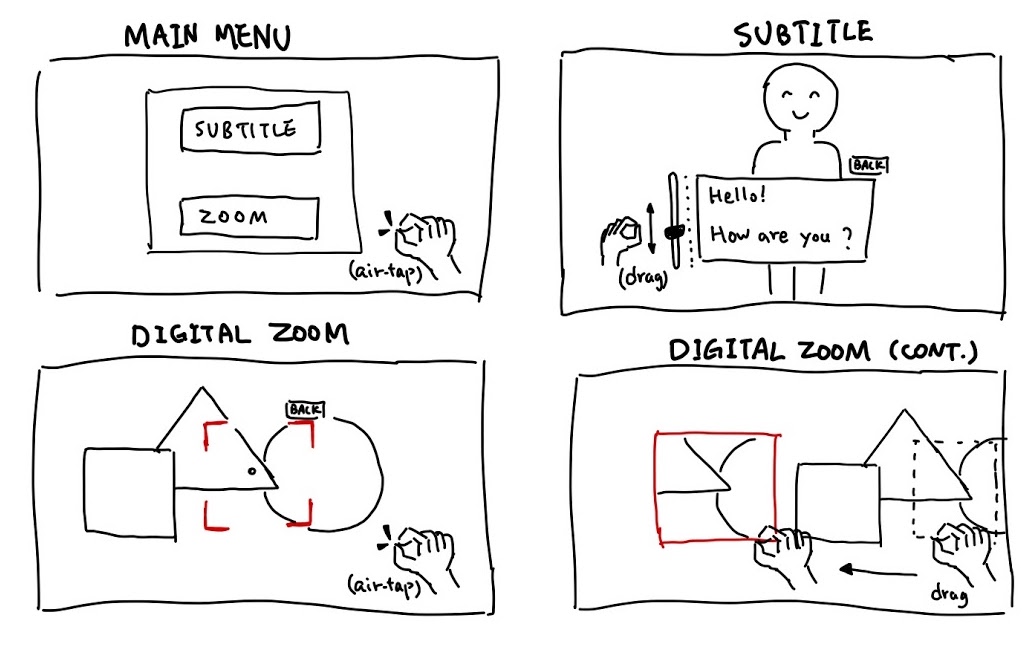 MAIN MENU
SUBTITLE
ZOOM
(air-tap)
SUBTITLE
BACK
Hello!
How are you ?
(drag)
DIGITAL ZOOM
BACK
(air-tap)
DIGITAL ZOOM (CONT.)
drag